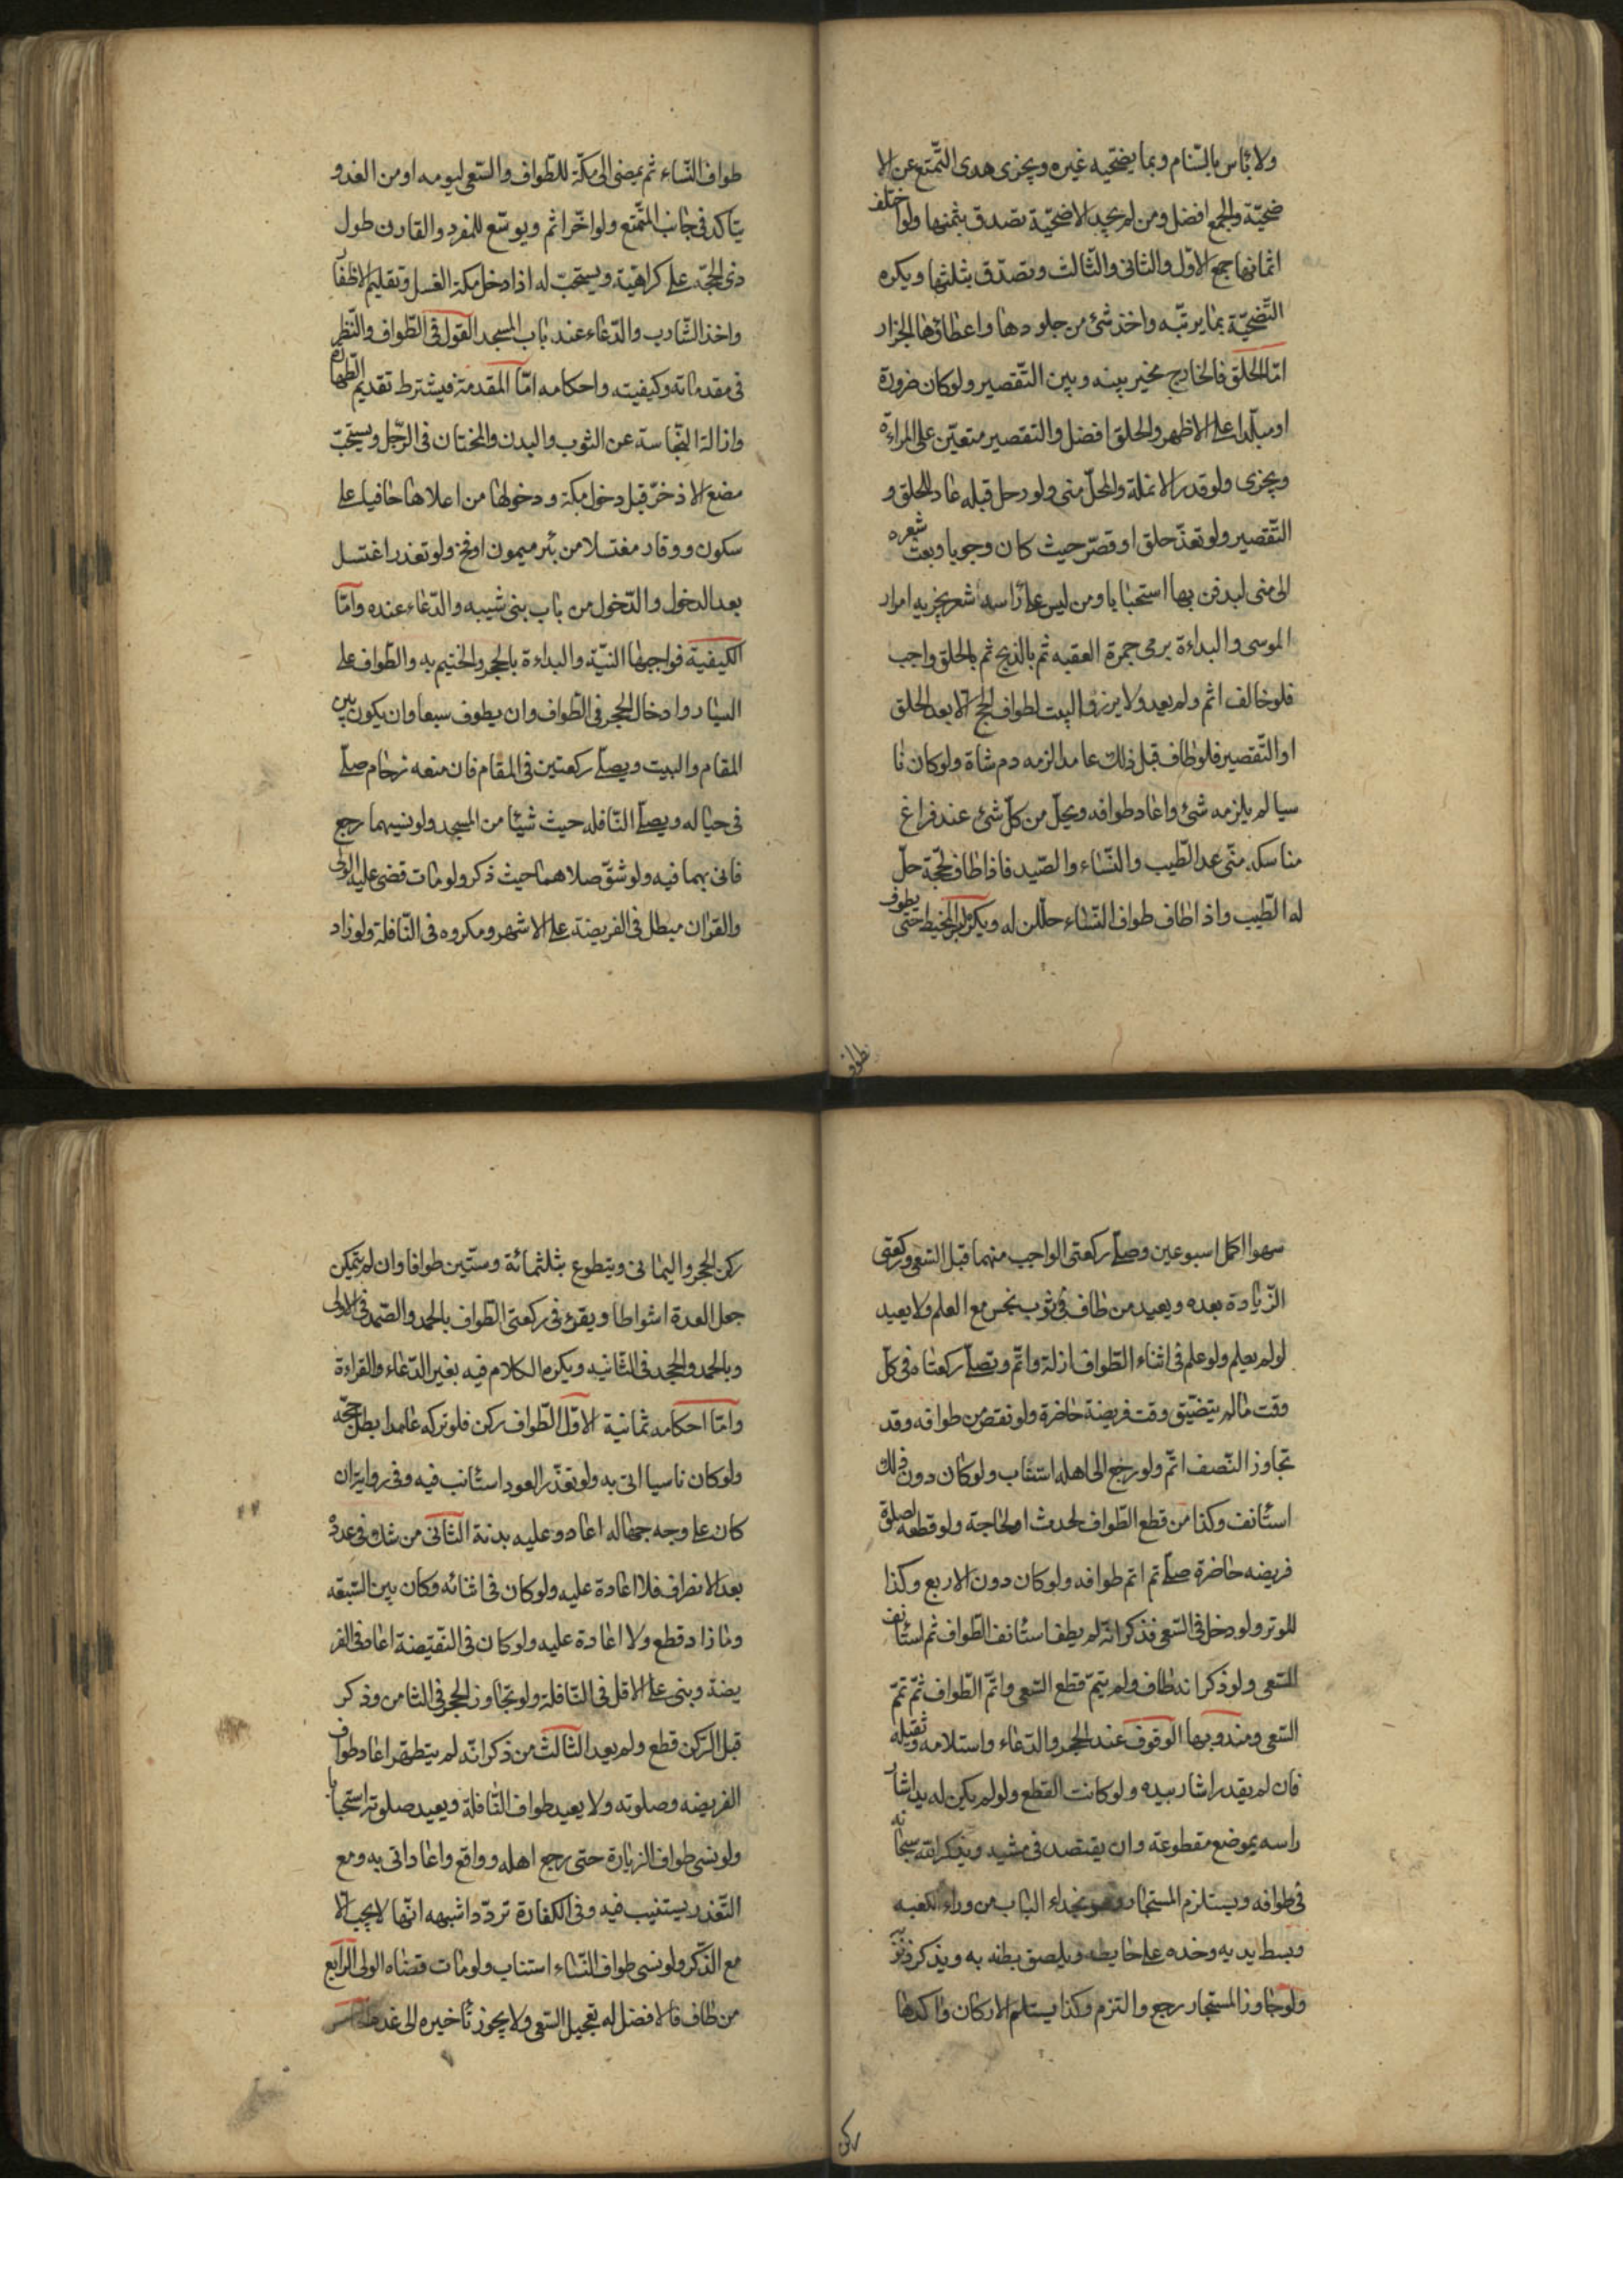 ولا بأس بالسنام وبما يضحيه غيره ويجزى هدى التّمتع عن الا
ضحيّة والجمع افضل ومن لم يجد الاضحيّة تصدق بثمنها ولو اختلف
اثمانها جمع الاوّل والثانى والثّالث وتصدّق بثلثها ويكره
التّضحيّة بما يربّيه واخذ شئ من جلودها واعطاؤها الجزار
امّا الحلق فالحاج مخير بينه وبين التّقصير ولو كان ضرورة
او ملبّدا على الاظهر والحلق افضل والتقصير متعيّن على المراءة
ويجزى ولو قدر الانملة والمحلّ منى ولو رحل قبله عاد للحلق و
التّقصير ولو تعذّ حلق او قصّر حيث كان وجوبا وبعث شعره
الى منى ليدفن بها استحبابا ومن ليس على راسه شعر يجزيه امرار
الموسى والبداءة برمى جمرة العقبه ثم بالذبح ثم بالحلق واجب
فلو خالف اثم ولم يعد ولا يزور البيت لطواف الحج الا بعد الحلق
او التّقصير فلو طاف قبل ذلك عامدا لزمه دم شاة ولو كان نا
سيا لم يلزمه شئ واعاد طوافه ويحلّ من كلّ شئ عند فراغ
مناسكه منى عدا الطّيب والنّساء والصّيد فاذا طاف لحجّة حلّ
له الطّيب واذا طاف طواف النّساء حللن له ويكره لبس المخيط حتى يطوف
طواف
طواف النّساء ثم يمضى الى مكّة للطّواف والسّعى ليومه او من الغد و
يتاكد فى جانب المتّمتع ولو اخّر اثم ويوسّع للمفرد والقارن طول
ذى الحجّة على كراهيّة ويستحبّ له اذا دخل مكة الغسل وتقليم الاظفا
واخذ الشّارب والدّعاء عند باب المسجد القول فى الطّواف والنّظر
فى مقدماته وكيفيته واحكامه امّا المقدمة فيشترط تقديم الطّهارة
وازالة النّجاسة عن الثوب والبدن والختان فى الرّجل ويستحبّ
مضغ الاذخر قبل دخول مكة ودخولها من اعلاها حافيا على
سكون ووقار مغتسلا من بئر ميمون او فخ ولو تعذر اغتسل
بعد الدخول والدّخول من باب بنى شيبه والدّعاء عنده وامّا
الكيفيّة فواجبها النيّة والبداءة بالحجر والختم به والطّواف على
اليسار وادخال الحجر فى الطّواف وان يطوف سبعا وان يكون بين
المقام والبيت ويصلّى ركعتين فى المقام فان منعه زحام صلّى
فى حياله ويصلّى النّافله حيث شيئا من المسجد ولو نسيهما رجع
فاتى بهما فيه ولو شقّ صلاهما حيث ذكر ولو مات قضى عليه الولى
والقران مبطل فى الفريضة على الاشهر ومكروه فى النّافلة ولو زاد
سهوا اكمل اسبوعين وصلّى ركعتى الواجب منهما قبل السّعى وركعتى
الزّيادة بعده ويعيد من طاف فى ثوب نجس مع العلم ولا يعيد
لو لم يعلم ولو علم فى اثناء الطّواف ازله واتمّ وتصلّى ركعتاه فى كلّ
وقت ما لم يتضيّق وقت فريضة حاضرة ولو نقص من طوافه وقد
تجاوز النّصف اتمّ ولو رجع الى اهله استناب ولو كان دون ذلك
استأنف وكذا من قطع الطّواف لحدث او لحاجة ولو قطعه لصلوة
فريضه حاضرة صلّى ثم اتم طوافه ولو كان دون الاربع وكذا
للوتر ولو دخل فى السّعى فذكر انّه لم يطف استأنف الطّواف ثم استأنف
للسّعى ولو ذكر انه طاف ولم يتمّ قطع السّعى واتمّ الطّواف ثمّ تمّم
السّعى ومندوبها الوقوف عند الحجر والدّعاء واستلامه وتقبيله
فان لم يقدر اشار بيده ولو كانت القطع ولو لم يكن له يد اشار
راسه بموضع مقطوعة وان يقتصد فى مشيه ويذكر الله سبحانه
فى طوافه ويستلزم المستجار وهو بحذاء الباب من وراء الكعبه
ويبسط يديه وخده على حايطه ويلصق بطنه به ويذكر ذنوبه
ولو جاوز المستجار رجع والتزم وكذا يستلم الاركان واكدها
ركن
ركن الحجر واليمانى ويتطوع بثلثمائة وستّين طوافا وان لم يتمكن
جعل العدة اشواطا ويقرئ فى ركعتى الطّواف بالحمد والصّمد فى الاولى
وبالحمد والجحد فى الثانيه ويكره الكلام فيه بغير الدّعاء والقراءة
وامّا احكامه ثمانية الاوّل الطّواف ركن فلو تركه عامدا بطل حجّه
ولو كان ناسيا اتى به ولو تعذّر العود استأنب فيه وفى رواية ان
كان على وجه جهاله اعاد وعليه بدنة الثّانى من شك فى عدده
بعد الانصراف فلا اعادة عليه ولو كان فى اثنائه وكان بين السّبعه
وما زاد قطع ولا اعادة عليه ولو كان فى النّقيضة اعاد فى الفر
يضة وبنى على الاقل فى النّافلة ولو تجاوز الحجر فى الثامن وذكر
قبل الرّكن قطع ولم يعد الثّالث من ذكر انّه لم يتطهّر اعاد طواف
الفريضه وصلوته ولا يعيد طواف النّافلة ويعيد صلوته استحبابا
ولو نسى طواف الزيارة حتى رجع اهله وواقع واعاد اتى به ومع
التّعذر يستنيب فيه وفى الكفارة تردّد اشبهه انّها لا يجب الا
مع الذّكر ولو نسى طواف النّساء استناب ولو مات قضاه الولى الرّابع
من طاف فالافضل له تعجيل السّعى ولا يجوز تأخيره الى غده